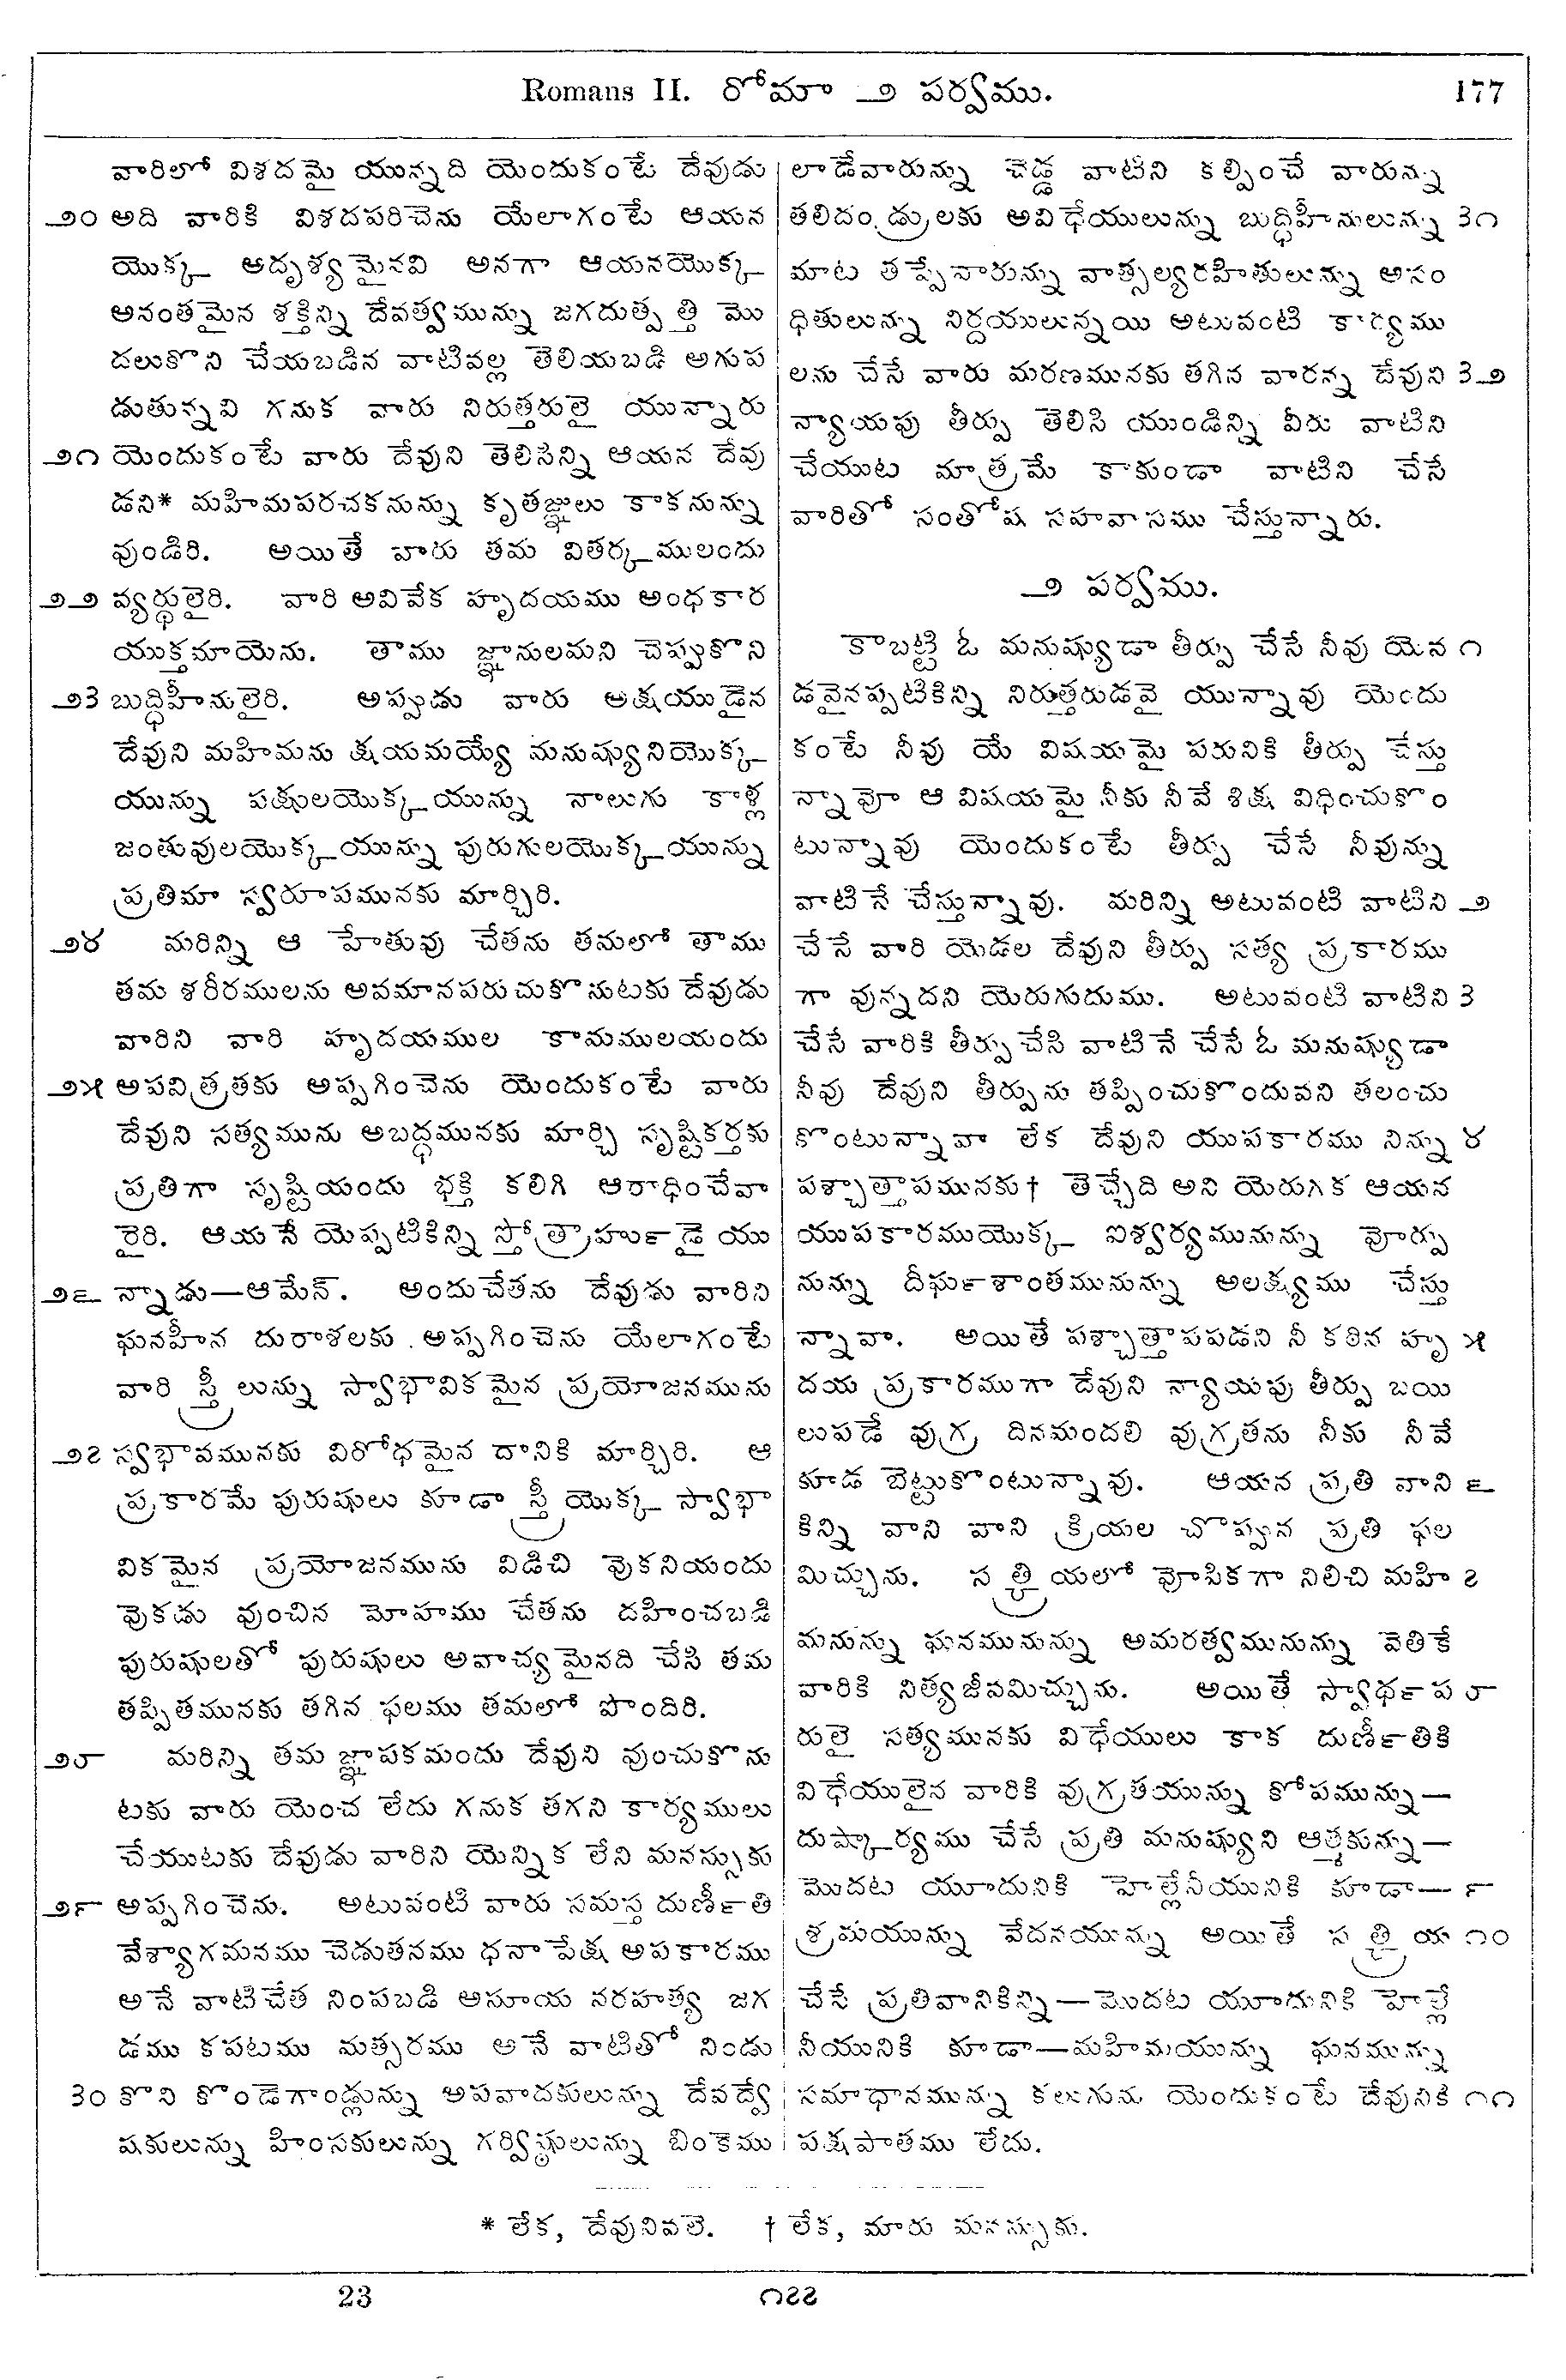 Romans II. రోమా ౨ పర్వము. 177
వారిలో విశదమై యున్నది యెందుకంటే దేవుడు
౨౦ అది వారికి విశదపరిచెను యేలాగంటే ఆయన
యొక్క అదృశ్యమైనవి అనగా ఆయనయొక్క
అనంతమైన శక్తిన్ని దేవత్వమున్ను జగదుత్పత్తి మొ
దలుకొని చేయబడిన వాటివల్ల తెలియబడి అగుప
డుతున్నవి గనుక వారు నిరుత్తరులై యున్నారు
౨౧ యెందుకంటే వారు దేవుని తెలిసిన్ని ఆయన దేవు
డని* మహిమపరచకనున్ను కృతజ్ఞులు కాకనున్ను
వుండిరి. అయితే వారు తమ వితర్కములందు
౨౨ వ్యర్థులైరి. వారి అవివేక హృదయము అంధకార
యుక్తమాయెను. తాము జ్ఞానులమని చెప్పుకొని
౨౩ బుద్ధిహీనులైరి. అప్పుడు వారు అక్షయుడైన
దేవుని మహిమను క్షయమయ్యే మనుష్యునియొక్క
యున్ను పక్షులయొక్కయున్ను నాలుగు కాళ్ల
జంతువులయొక్కయున్ను పురుగులయొక్కయున్ను
ప్రతిమా స్వరూపమునకు మార్చిరి.
౨౪ మరిన్ని ఆ హేతువు చేతను తమలో తాము
తమ శరీరములను అవమానపరుచుకొనుటకు దేవుడు
వారిని వారి హృదయముల కామములయందు
౨౫ అపవిత్రతకు అప్పగించెను యెందుకంటే వారు
దేవుని సత్యమును అబద్ధమునకు మార్చి సృష్టికర్తకు
ప్రతిగా సృష్టియందు భక్తి కలిగి ఆరాధించేవా
రైరి. ఆయనే యెప్పటికిన్ని స్తోత్రాహుఁడై యు
౨౬ న్నాడు—ఆమేన్. అందుచేతను దేవుడు వారిని
ఘనహీన దురాశలకు అప్పగించెను యేలాగంటే
వారి స్త్రీలున్ను స్వాభావికమైన ప్రయోజనమును
౨౭ స్వభావమునకు విరోధమైన దానికి మార్చిరి. ఆ
ప్రకారమే పురుషులు కూడా స్త్రీయొక్క స్వాభా
వికమైన ప్రయోజనమును విడిచి వొకనియందు
వొకడు వుంచిన మోహము చేతను దహించబడి
పురుషులతో పురుషులు అవాచ్యమైనది చేసి తమ
తప్పితమునకు తగిన ఫలము తమలో పొందిరి.
౨౮ మరిన్ని తమ జ్ఞాపకమందు దేవుని వుంచుకొను
టకు వారు యెంచ లేదు గనుక తగని కార్యములు
చేయుటకు దేవుడు వారిని యెన్నిక లేని మనస్సుకు
౨౯ అప్పగించెను. అటువంటి వారు సమస్త దుర్ణీతి
వేశ్యాగమనము చెడుతనము ధనాపేక్ష అపకారము
అనే వాటిచేత నింపబడి అసూయ నరహత్య జగ
డము కపటము మత్సరము అనే వాటితో నిండు
౩౦ కొని కొండెగాండ్లున్ను అపవాదకులున్ను దేవద్వే
షకులున్ను హింసకులున్ను గర్విష్ఠులున్ను బింకెము
లాడేవారున్ను చెడ్డ వాటిని కల్పించే వారున్ను
తలిదండ్రులకు అవిధేయులున్ను బుద్ధిహీనులున్ను ౩౧
మాట తప్పేవారున్ను వాత్సల్యరహితులున్ను అసం
ధితులున్ను నిర్దయులున్నయి అటువంటి కార్యము
లను చేసే వారు మరణమునకు తగిన వారన్న దేవుని ౩౨
న్యాయపు తీర్పు తెలిసి యుండిన్ని వీరు వాటిని
చేయుట మాత్రమే కాకుండా వాటిని చేసే
వారితో సంతోష సహవాసము చేస్తున్నారు.
౨ పర్వము.
కాబట్టి ఓ మనుష్యుడా తీర్పు చేసే నీవు యెవ ౧
డవైనప్పటికిన్ని నిరుత్తరుడవై యున్నావు యెందు
కంటే నీవు యే విషయమై పరునికి తీర్పు చేస్తు
న్నావో ఆ విషయమై నీకు నీవే శిక్ష విధించుకొం
టున్నావు యెందుకంటే తీర్పు చేసే నీవున్ను
వాటినే చేస్తున్నావు. మరిన్ని అటువంటి వాటిని ౨
చేసే వారి యెడల దేవుని తీర్పు సత్య ప్రకారము
గా వున్నదని యెరుగుదుము. అటువంటి వాటిని ౩
చేసే వారికి తీర్పుచేసి వాటినే చేసే ఓ మనుష్యుడా
నీవు దేవుని తీర్పును తప్పించుకొందువని తలంచు
కొంటున్నావా లేక దేవుని యుపకారము నిన్ను ౪
పశ్చాత్తాపమునకు† తెచ్చేది అని యెరుగక ఆయన
యుపకారముయొక్క ఐశ్వర్యమునున్ను వోర్పు
నున్ను దీర్ఘశాంతమునున్ను అలక్ష్యము చేస్తు
న్నావా. అయితే పశ్చాత్తాపపడని నీ కఠిన హృ ౫
దయ ప్రకారముగా దేవుని న్యాయపు తీర్పు బయి
లుపడే వుగ్ర దినమందలి వుగ్రతను నీకు నీవే
కూడ బెట్టుకొంటున్నావు. ఆయన ప్రతి వాని ౬
కిన్ని వాని వాని క్రియల చొప్పున ప్రతి ఫల
మిచ్చును. సత్క్రియలో వోపికగా నిలిచి మహి ౭
మనున్ను ఘనమునున్ను అమరత్వమునున్ను వెతికే
వారికి నిత్యజీవమిచ్చును. అయితే స్వార్థప ౮
రులై సత్యమునకు విధేయులు కాక దుర్ణీతికి
విధేయులైన వారికి వుగ్రతయున్ను కోపమున్ను—
దుష్కార్యము చేసే ప్రతి మనుష్యుని ఆత్మకున్ను—
మొదట యూదునికి హెల్లేనీయునికి కూడా— ౯
శ్రమయున్ను వేదనయున్ను అయితే సత్క్రియ ౧౦
చేసే ప్రతివానికిన్ని—మొదట యూదునికి హెల్లే
నీయునికి కూడా—మహిమయున్ను ఘనమున్ను
సమాధానమున్ను కలుగును యెందుకంటే దేవునికి ౧౧
పక్షపాతము లేదు.
* లేక, దేవునివలె. † లేక, మారు మనస్సుకు.
23 ౧౭౭